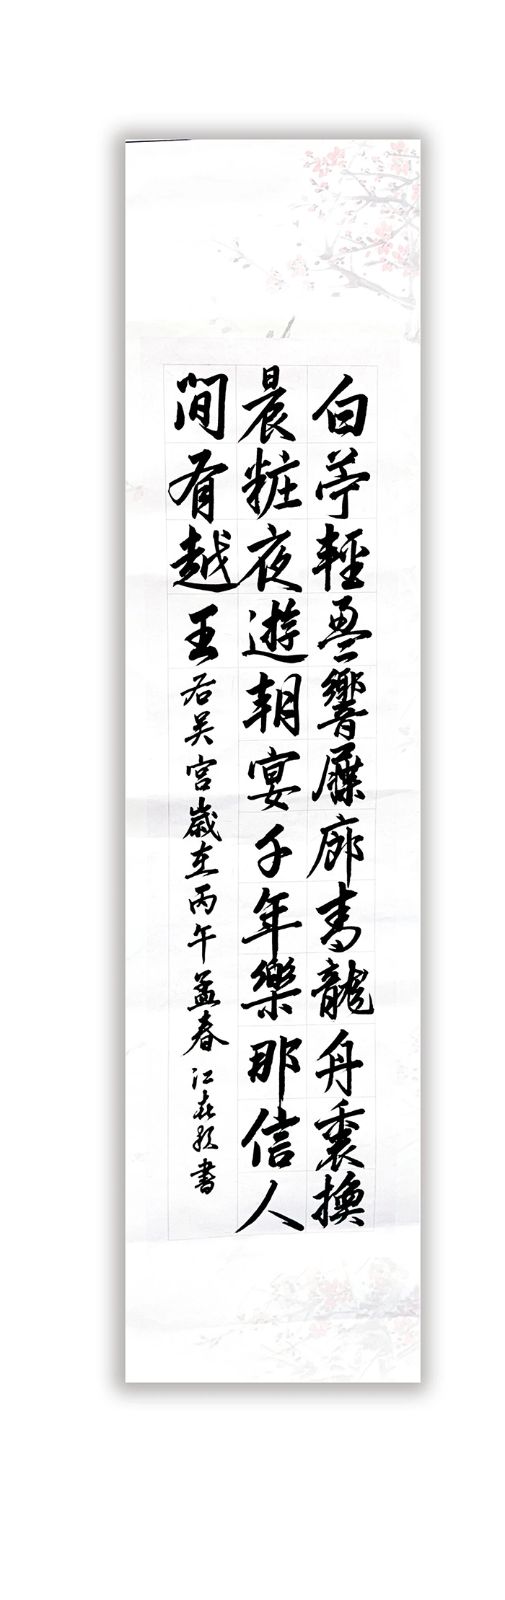 白苧輕響屧廊青龍舟裏換
晨粧夜遊朝宴千年樂那信人
間有越王右吴宫歲在丙午孟春江書